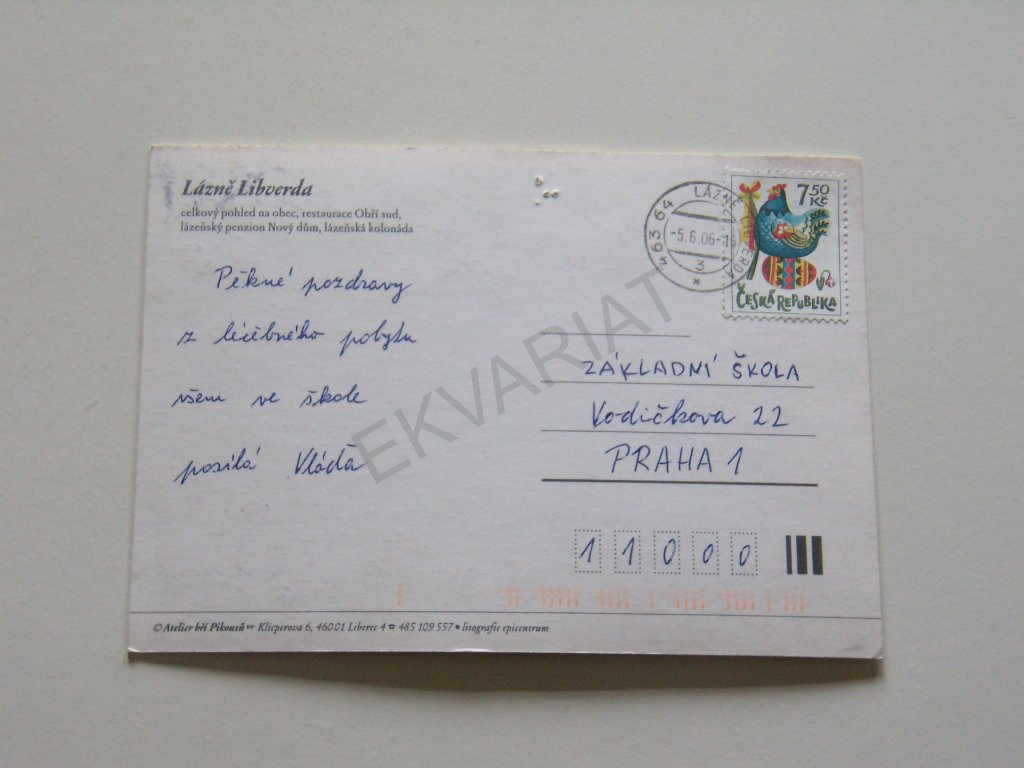 Lázně Libverda
celkový pohled na obec, restaurace Obří sud,
lázeňský penzion Nový dům, lázeňská kolonáda
Pěkné pozdravy
z léčebného pobytu
všem ve škole
posílá Vláďa
463 64 LÁZNĚ LIBVERDA
-5.6.06-16
3
*
7,50
Kč
ČESKÁ REPUBLIKA
ZÁKLADNÍ ŠKOLA
Vodičkova 22
PRAHA 1
11000
EKVARIAT
© Atelier bří Pikousů Klicperova 6, 46001 Liberec 4 ☎ 485 109 557 • litografie epicentrum